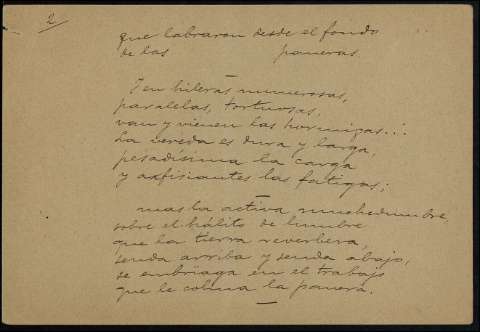 2
que labraron desde el fondo
de las paneras.
Y en hileras numerosas,
paralelas, tortuosas,
van y vienen las hormigas...
La vereda es dura y larga,
pesadísima la carga
y asfixiantes las fatigas;
mas la activa muchedumbre,
sobre el hálito de lumbre
que la tierra reverbera,
senda arriba y senda abajo,
se embriaga en el trabajo
que le colma la panera.